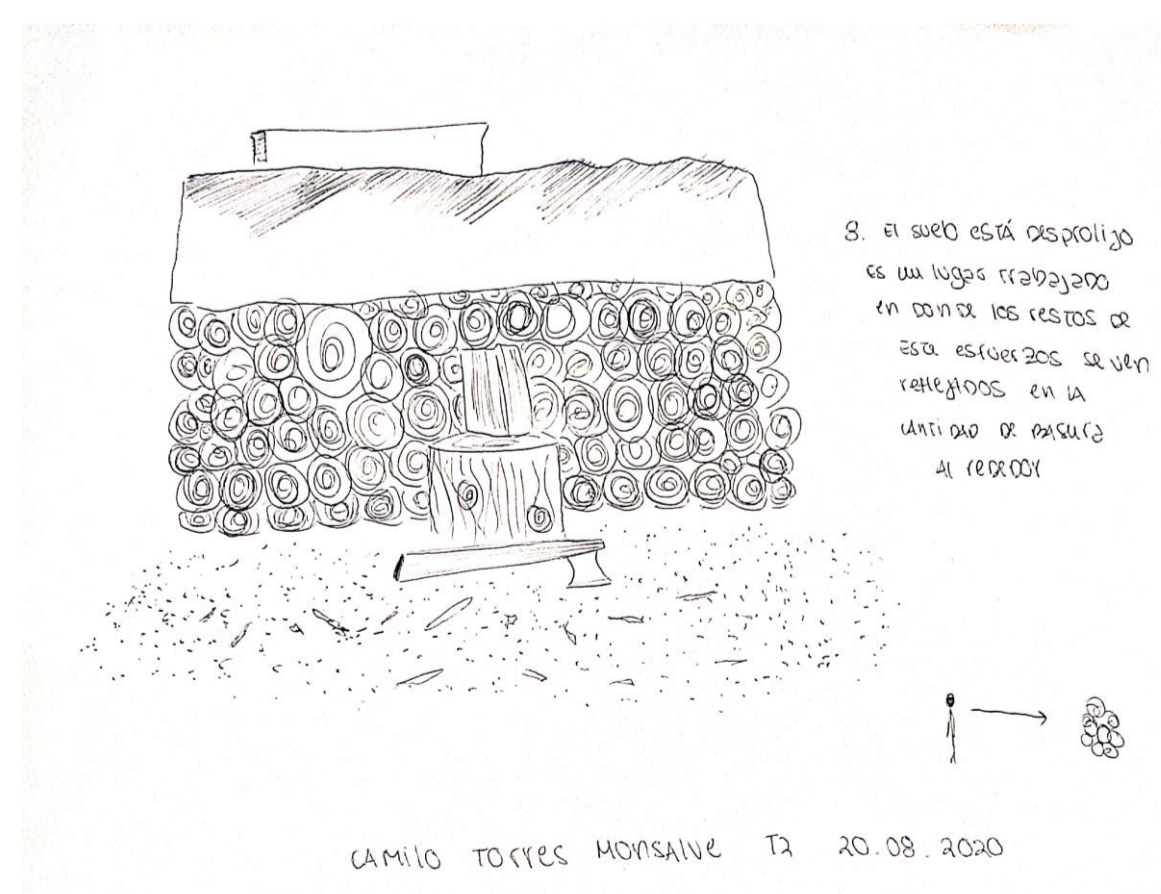 8. El suelo está desprolijo
es un lugar trabajado
en donde los restos de
este esfuerzos se ven
reflejados en la
cantidad de basura
al rededor
CAMILO TORRES MONSALVE T2 20.08.2020